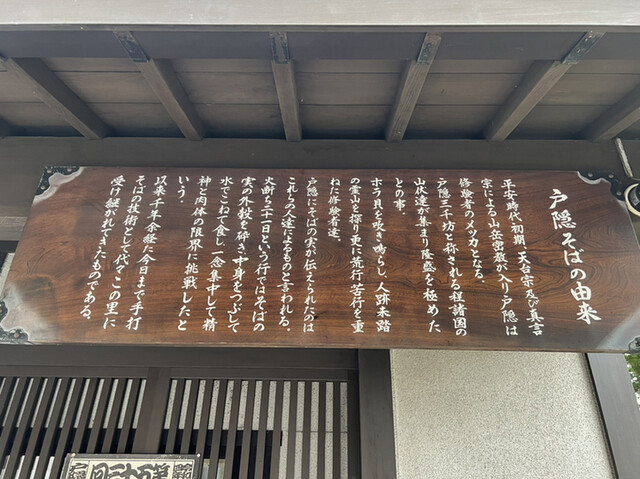 戸隠そばの由来
平安時代初期、天台宗及び真言
宗による山岳密教が入り戸隠は
修験者のメッカとなる。
戸隠三千坊と称される程諸国の
山伏達が集まり隆盛を極めた
との事。
ホラ貝を吹き鳴らし、人跡未踏
の霊山を探り更に荒行苦行を重
ねた修験者達。
戸隠にそばの実が伝えられたのは
これらの人達によるものと言われる。
火断ち二十一日という行ではそばの
実の外殻を砕き中身をつぶして
水でこねて食し一念集中して精
神と肉体の限界に挑戦したと
いう。
以来千年余経た今日まで手打
そばの技術として代々この里に
受け継がれてきたものである。